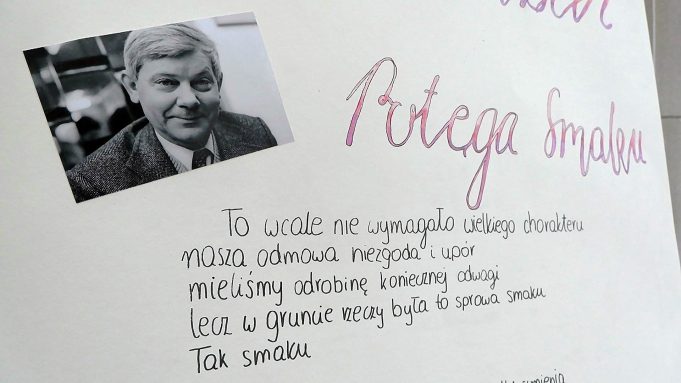 Potęga Smaku
To wcale nie wymagało wielkiego charakteru
nasza odmowa niezgoda i upór
mieliśmy odrobinę koniecznej odwagi
lecz w gruncie rzeczy była to sprawa smaku
Tak smaku